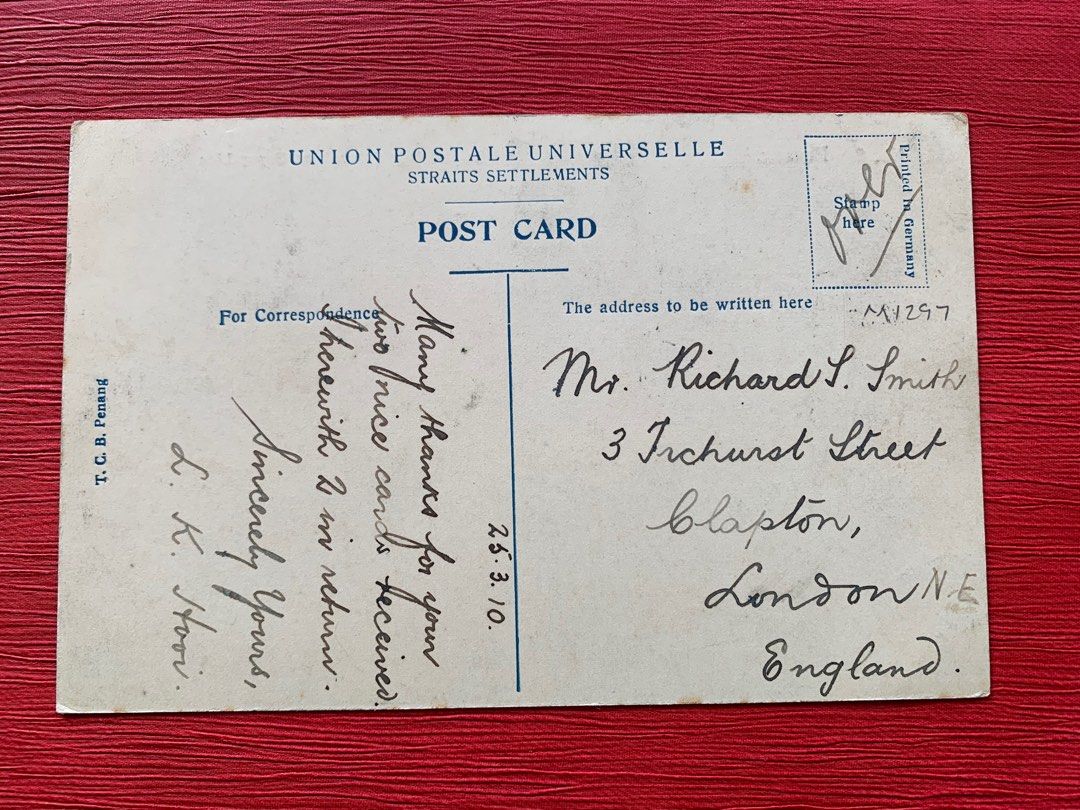 UNION POSTALE UNIVERSELLE
STRAITS SETTLEMENTS
POST CARD
Printed in Germany
Stamp
here
over
For Correspondence
The address to be written here
M1297
T. C. B. Penang
25.3.10.
Many thanks for your
two nice cards received.
I herewith 2 in return.
Sincerely Yours,
L. K. Hooi.
Mr. Richard S. Smith
3 Street
Clapton,
London N.E
England.